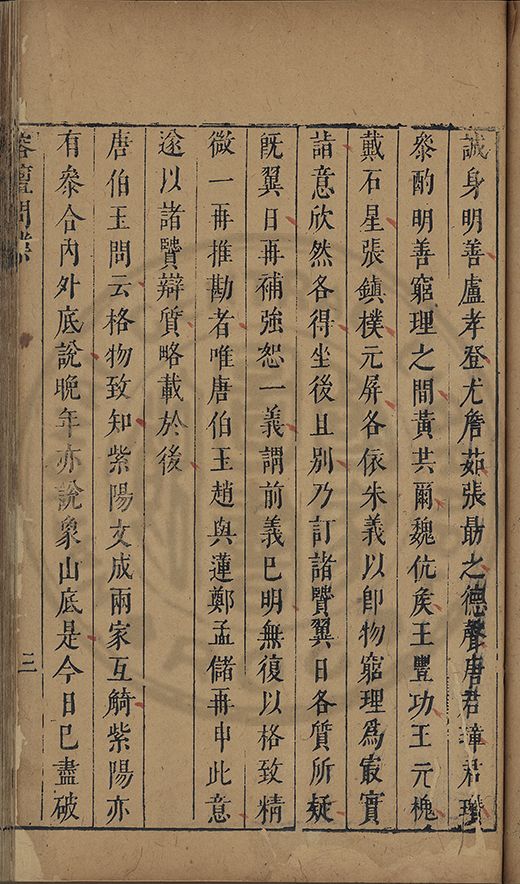 誠身明善盧孝登尤詹茹張勗之德馨唐君璋君瓚
叅酌明善窮理之間黃共爾魏伉矦王豐功王元槐
戴石星張鎮樸元屏各依朱義以卽物窮理爲㝡實
詣意欣然各得坐後且别乃訂諸贒翼日各質所疑
旣翼日再補強恕一義謂前義巳明無復以格致精
微一再推勘者唯唐伯玉趙與蓮鄭孟儲再申此意
遂以諸贒辯質略載於後
唐伯玉問云格物致知紫陽文成兩家互觭紫陽亦
有叅合內外底說晚年亦說象山底是今日巳盡破
榕壇問業
三